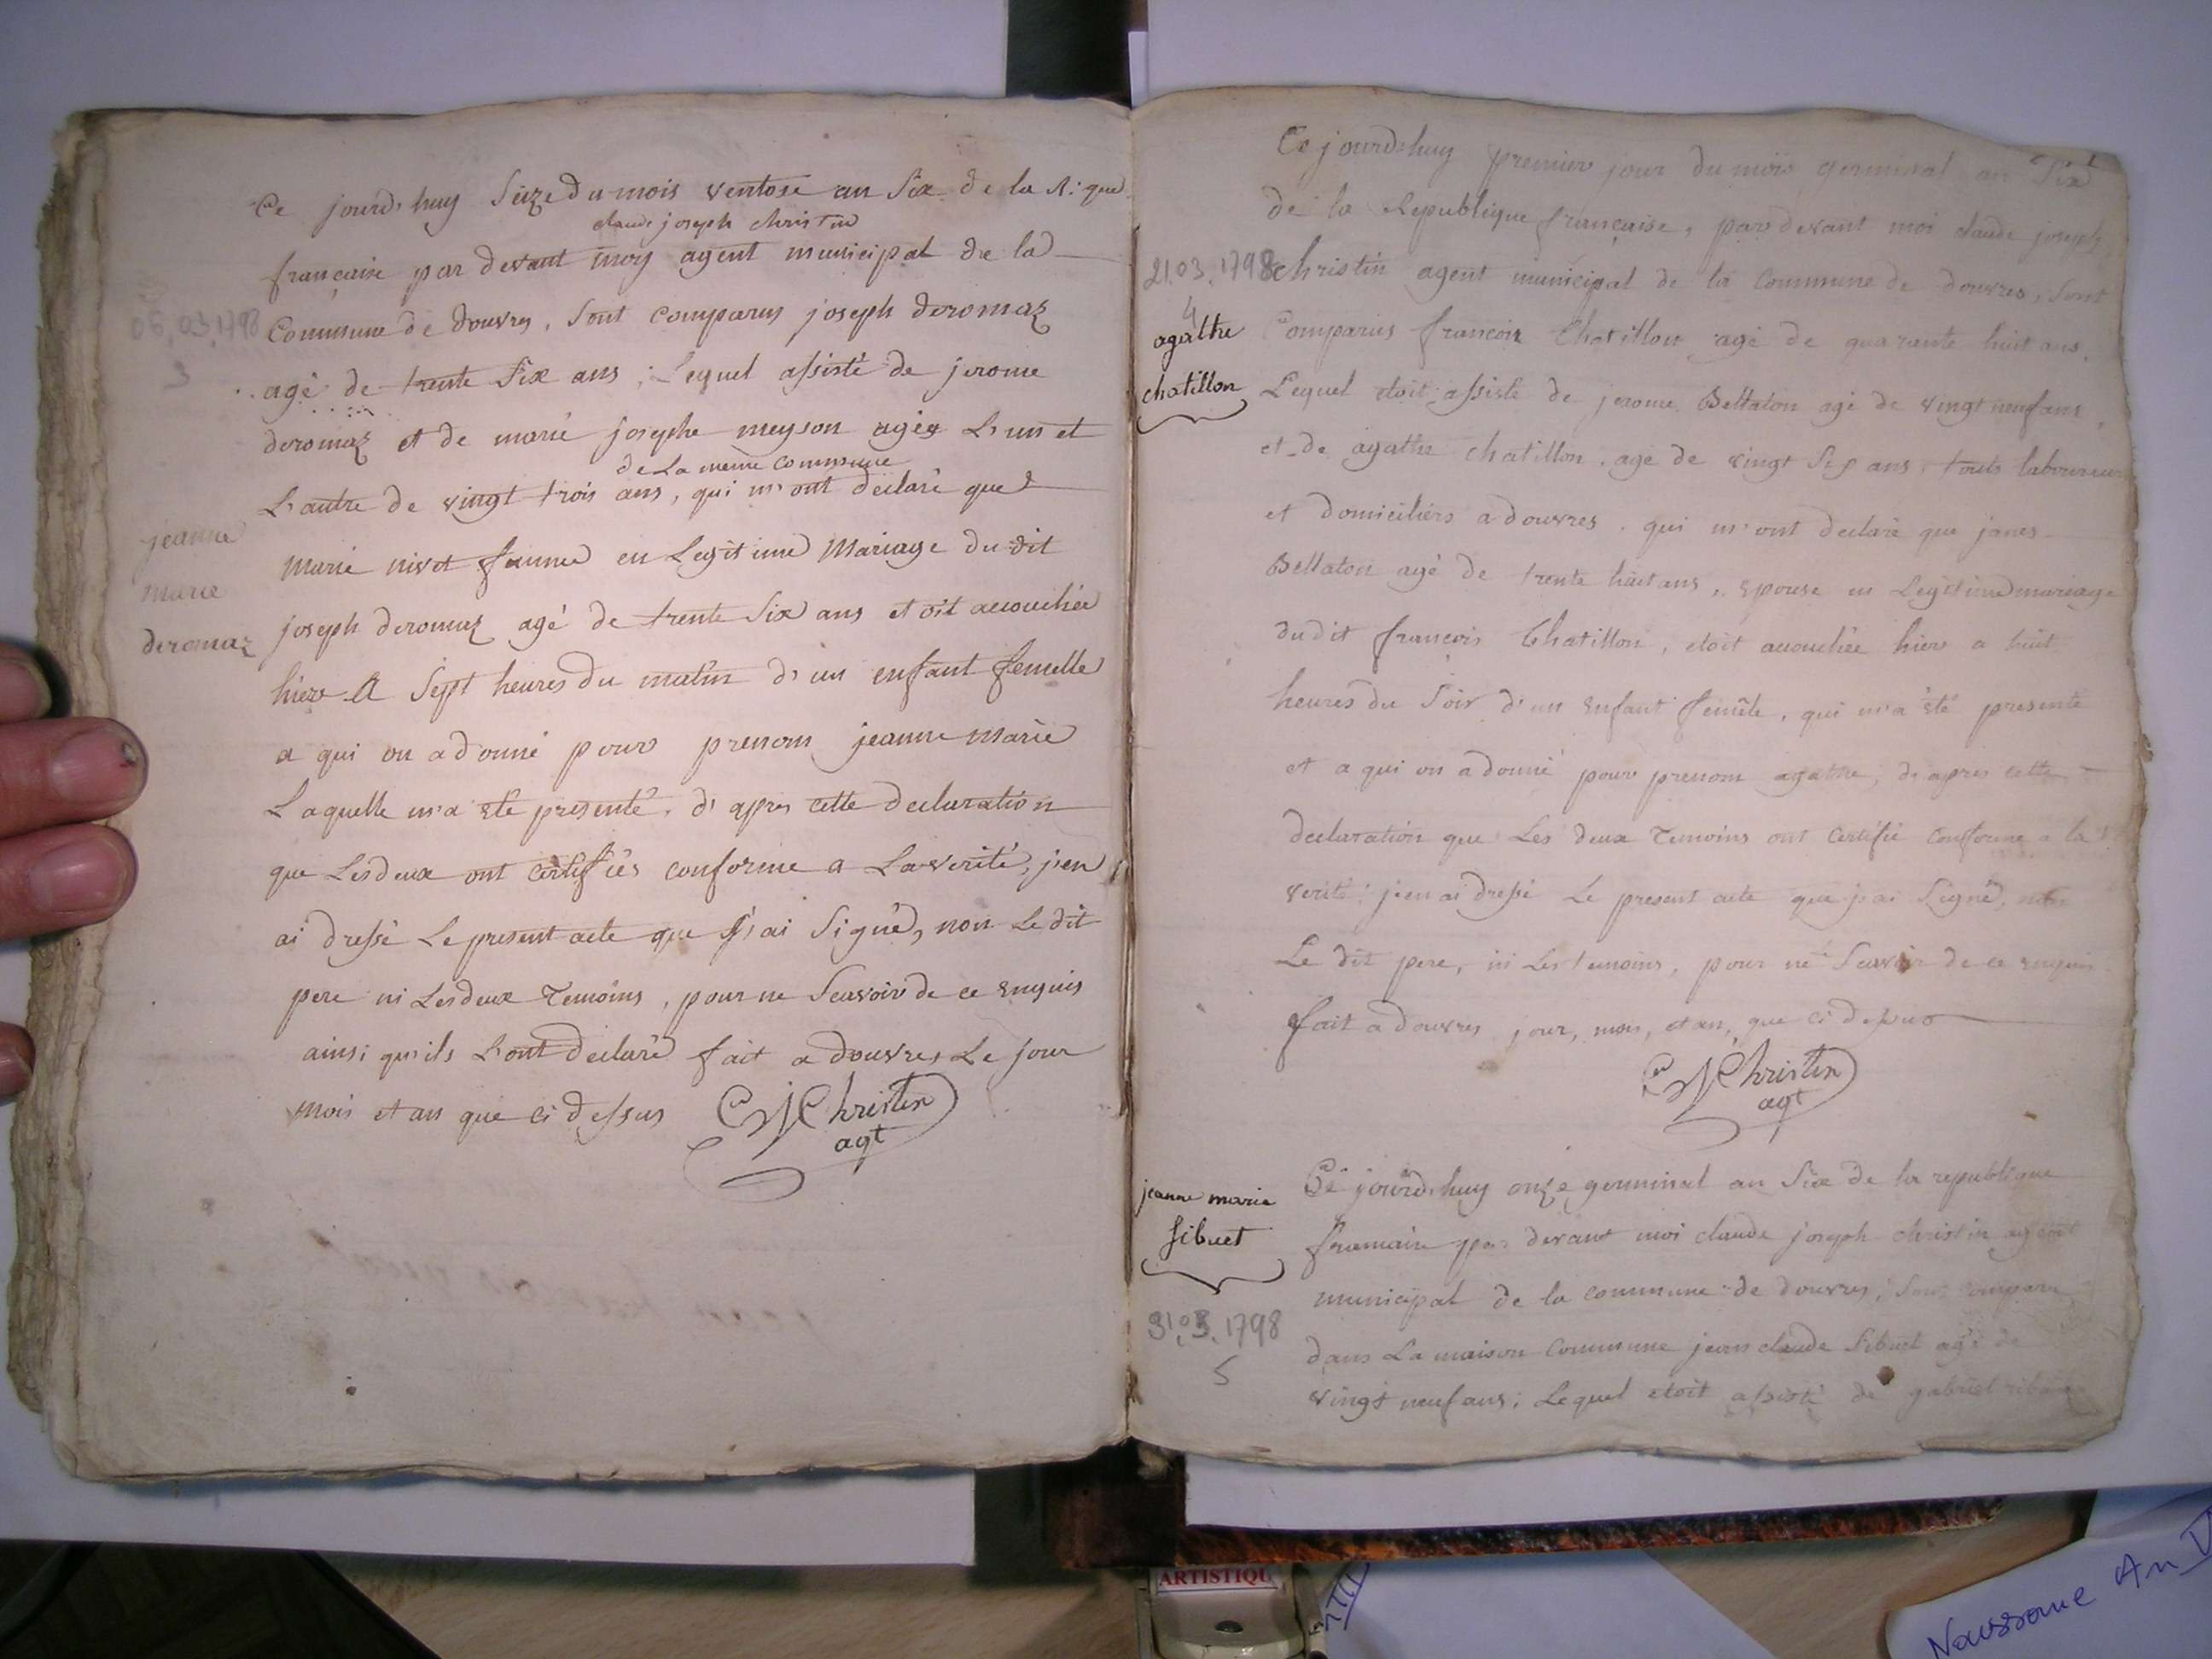 Ce jourd'huy Seize du mois ventose an Six de la R:que
claude joseph christin
française par devant moy agent municipal de la
Commune de douvres, sont comparus joseph deromaz
agé de trente Six ans; Lequel assisté de jerome
deromaz et de marie josephe meyson agés L'un et
de La meme commune
L'autre de vingt trois ans, qui m'ont declaré que
marie nivet femme en Legitime Mariage du dit
joseph deromaz agé de trente Six ans etoit accouchée
hier A Sept heures du matin d'un enfant femelle
a qui on a donné pour prenom jeanne marie
Laquelle m'a été presenté. d'apres cette declaration
que Les deux ont certifiés conforme a La verité, j'en
ai dressé Le present acte que j'ai Signé, non Le dit
pere ni Les deux Temoins, pour ne Scavoir de ce Enquis
ainsi qu'ils L'ont declaré fait a douvres Le jour
mois et an que ci dessus CJChristin
agt
06.03.1798
3
jeanne
marie
deromaz
Ce jourd'huy premier jour du mois germinal an Six
de la Republique française, par devant moi claude joseph
christin agent municipal de la Commune de douvres, sont
Comparus francois Chatillon agé de quarante huit ans.
Lequel etoit assisté de jerome Bellaton agé de vingt neuf ans,
et de agathe chatillon. agé de vingt Six ans, touts laboureurs
et domiciliérs a douvres. qui m'ont declaré que
Bellaton agé de trente huit ans, Epouse en Legitime mariage
du dit françois Chatillon, etoit accouchée hier a huit
heures du Soir d'un Enfant femele, qui m'a été presenté
et a qui on a donné pour prenom agathe, d'apres cette
declaration que Les deux Temoins ont certifié conforme a la
verité: j'en ai dressé Le present acte que j'ai Signé, non
Le dit pere, ni Les temoins, pour ne Scavoir de ce enquis
fait a douvres jour, mois, et an, que ci dessus
CJChristin
agt
21.03.1798
4
agathe
chatillon
Ce jourd'huy onze germinal an Six de la republique
francaise par devant moi claude joseph christin agent
municipal de la commune de douvres; sont comparu
dans La maison Commune jean claude Sibuet agé de
vingt neuf ans; Lequel etoit assisté de gabriel
jeanne marie
sibuet
31.03.1798
5
ARTISTIQU
Naissance An